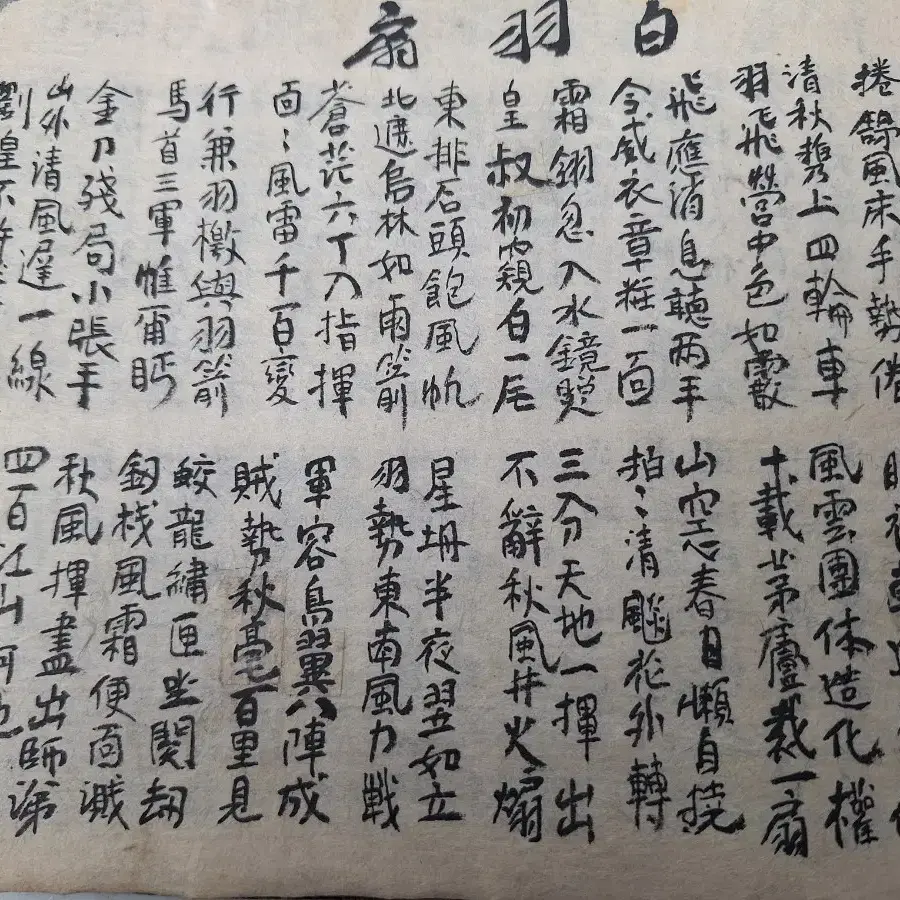 白羽扇
捲舒風床手勢倦
清秋携上四輪車
羽飛營中色如霰
飛應消息聽兩手
令威衣章粧一面
霜翎忽入水鏡
皇叔初窺白一尾
東排石頭飽風帆
北遞烏林如雨箭
蒼茫六丁入指揮
面〻風雷千百變
行兼羽檄與羽箭
馬首三軍惟爾眄
金刀殘局小張手
山外清風遲一線
劉皇不
風雲團体造化權
十載茅廬裁一扇
山空春日懶自撓
拍〻清飈花外轉
三分天地一揮出
不辭秋風井火煽
星坍半夜翌如立
羽勢東南風力戰
軍容鳥翼八陣成
賊勢秋毫百里見
鮫龍繡匣坐関却
釰栈風霜便面濺
秋風揮盡出師涕
四百江山